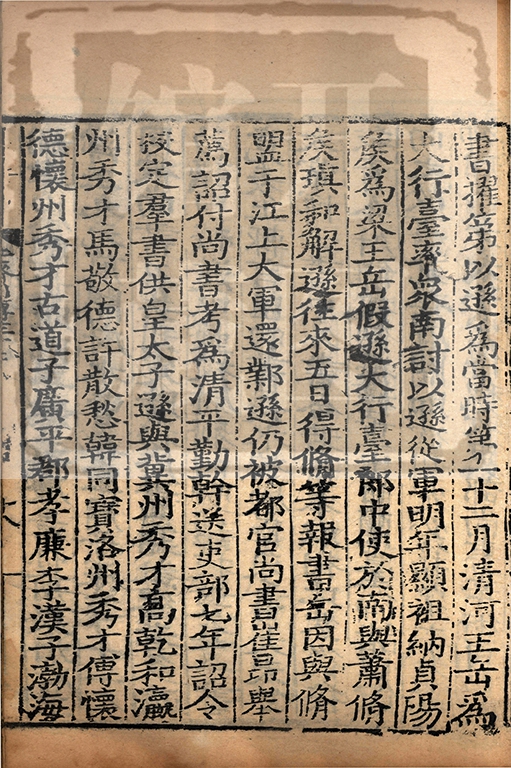 書擢第以遜爲當時第一十二月清河王岳爲
大行臺率衆南討以遜從軍明年顯祖納貞陽
侯爲梁王岳假遜大行臺郎中使於南與蕭脩
侯瑱和解遜往來五日得脩等報書岳因與脩
盟于江上大軍還鄴遜仍被都官尚書崔昂舉
薦詔付尚書考爲清平勤幹送吏部七年詔令
挍定羣書供皇太子遜與冀州秀才高乾和瀛
州秀才馬敬德許散愁韓同寳洛州秀才傅懷
德懷州秀才古道子廣平郡孝廉李漢子渤海